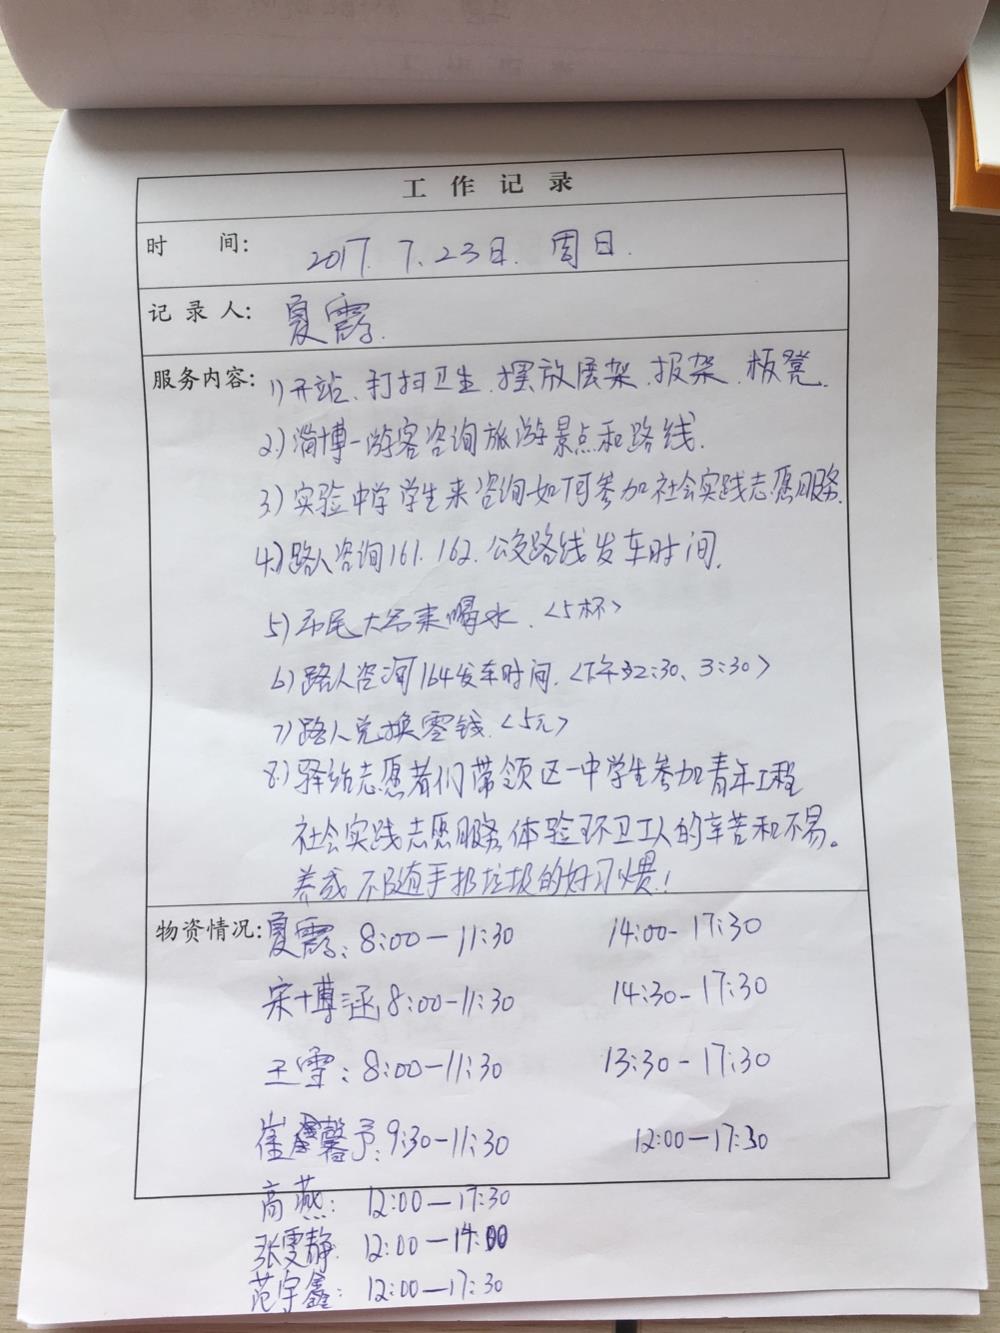 工作记录
时 间: 2017. 7. 23日. 周日.
记录人: 夏霞.
服务内容: 1) 开站、打扫卫生、摆放展架、报架、板凳.
2) 淄博一游客咨询旅游景点和路线.
3) 实验中学学生来咨询如何参加社会实践志愿服务.
4) 路人咨询161. 162. 公交路线发车时间.
5) 环尾大爷来喝水. <5杯>
6) 路人咨询164发车时间. <下午2:30、3:30>
7) 路人兑换零钱. <5元>
8) 驿站志愿者们带领区一中学生参加青年工程
社会实践志愿服务, 体验环卫工人的辛苦和不易。
养成不随手扔垃圾的好习惯!
物资情况: 夏霞: 8:00—11:30 14:00-17:30
宋博涵 8:00-11:30 14:30-17:30
王雪: 8:00—11:30 13:30-17:30
崔馨予: 9:30-11:30 12:00—17:30
高燕: 12:00—17:30
张雯静 12:00—14:00
范宇鑫: 12:00—17:30